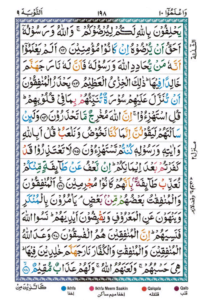 التوبة ٩ ١٩٨ واعلموا ١٠
يَحْلِفُوْنَ بِاللّٰهِ لَكُمْ لِيُرْضُوْكُمْ ۚ وَاللّٰهُ وَرَسُوْلُهٗۤ
اَحَقُّ اَنْ يُّرْضُوْهُ اِنْ كَانُوْا مُؤْمِنِيْنَ ۝ اَلَمْ يَعْلَمُوْۤا
اَنَّهٗ مَنْ يُّحَادِدِ اللّٰهَ وَرَسُوْلَهٗ فَاَنَّ لَهٗ نَارَ جَهَنَّمَ
خَالِدًا فِيْهَا ؕ ذٰلِكَ الْخِزْيُ الْعَظِيْمُ ۝ يَحْذَرُ الْمُنٰفِقُوْنَ
اَنْ تُنَزَّلَ عَلَيْهِمْ سُوْرَةٌ تُنَبِّئُهُمْ بِمَا فِيْ قُلُوْبِهِمْ ؕ
قُلِ اسْتَهْزِءُوْا ۚ اِنَّ اللّٰهَ مُخْرِجٌ مَّا تَحْذَرُوْنَ ۝ وَلَئِنْ
سَاَلْتَهُمْ لَيَقُوْلُنَّ اِنَّمَا كُنَّا نَخُوْضُ وَنَلْعَبُ ؕ قُلْ اَبِاللّٰهِ
وَاٰيٰتِهٖ وَرَسُوْلِهٖ كُنْتُمْ تَسْتَهْزِءُوْنَ ۝ لَا تَعْتَذِرُوْا قَدْ
كَفَرْتُمْ بَعْدَ اِيْمَانِكُمْ ؕ اِنْ نَّعْفُ عَنْ طَآئِفَةٍ مِّنْكُمْ
نُعَذِّبْ طَآئِفَةًۢ بِاَنَّهُمْ كَانُوْا مُجْرِمِيْنَ ۝ اَلْمُنٰفِقُوْنَ
وَالْمُنٰفِقٰتُ بَعْضُهُمْ مِّنْۢ بَعْضٍ ۘ يَاْمُرُوْنَ بِالْمُنْكَرِ
وَيَنْهَوْنَ عَنِ الْمَعْرُوْفِ وَيَقْبِضُوْنَ اَيْدِيَهُمْ ؕ نَسُوا اللّٰهَ
فَنَسِيَهُمْ ؕ اِنَّ الْمُنٰفِقِيْنَ هُمُ الْفٰسِقُوْنَ ۝ وَعَدَ اللّٰهُ
الْمُنٰفِقِيْنَ وَالْمُنٰفِقٰتِ وَالْكُفَّارَ نَارَ جَهَنَّمَ خٰلِدِيْنَ فِيْهَا ؕ
هِيَ حَسْبُهُمْ ۚ وَلَعَنَهُمُ اللّٰهُ ۚ وَلَهُمْ عَذَابٌ مُّقِيْمٌ ۝